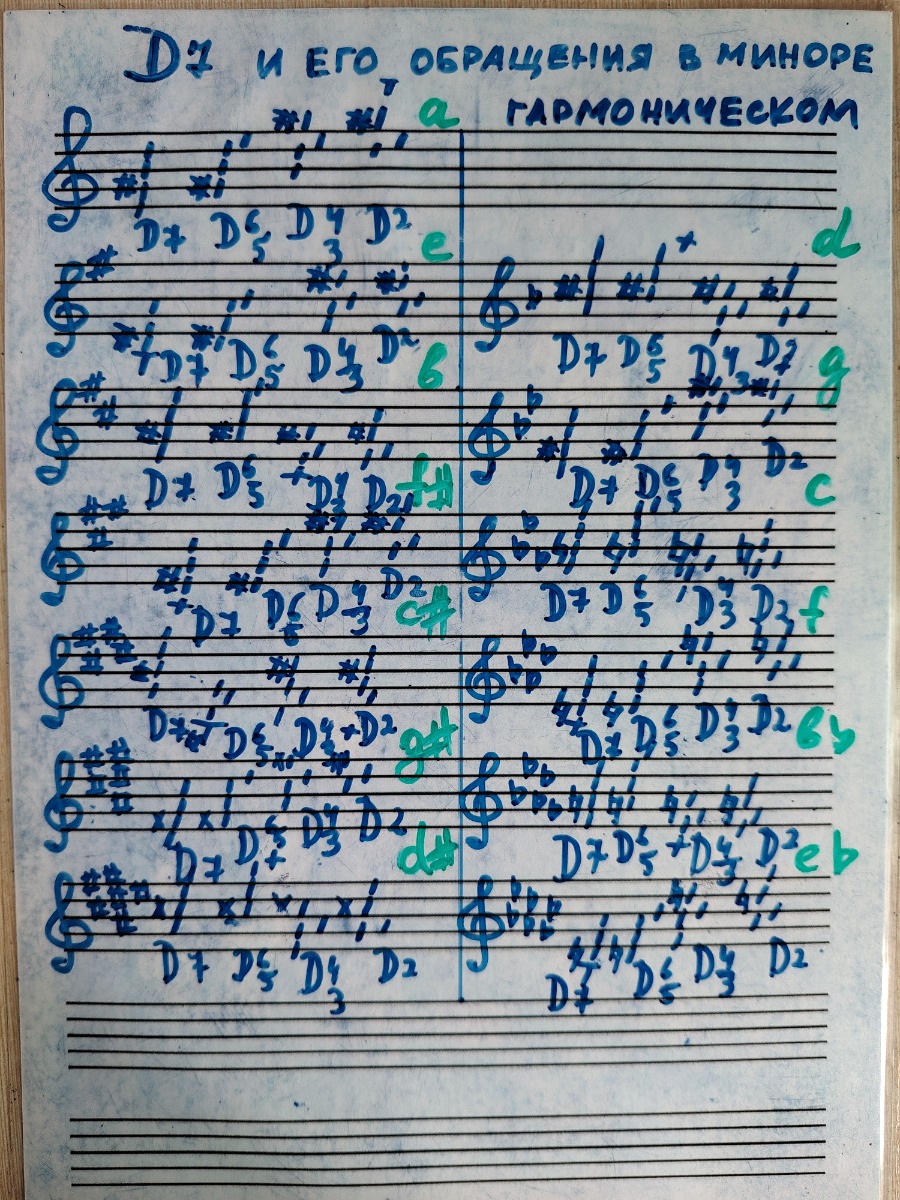 D7 И ЕГО ОБРАЩЕНИЯ В МИНОРЕ
ГАРМОНИЧЕСКОМ
a
D7 D6/5 D4/3 D2
e
D7 D6/5 D4/3 D2
d
D7 D6/5 D4/3 D2
в
D7 D6/5 D4/3 D2
g
D7 D6/5 D4/3 D2
f#
D7 D6/5 D4/3 D2
c
D7 D6/5 D4/3 D2
c#
D7 D6/5 D4/3 D2
f
D7 D6/5 D4/3 D2
g#
D7 D6/5 D4/3 D2
в♭
D7 D6/5 D4/3 D2
d#
D7 D6/5 D4/3 D2
e♭
D7 D6/5 D4/3 D2